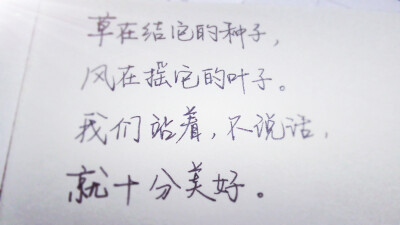 草在结它的种子,
风在摇它的叶子。
我们站着,不说话,
就十分美好。